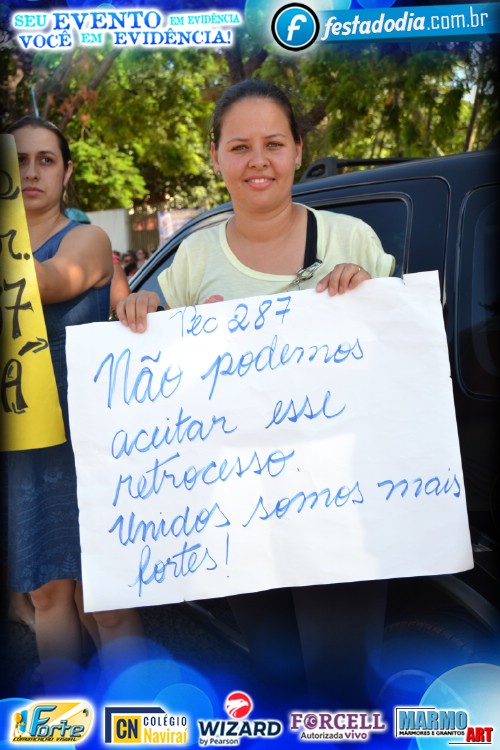 SEU EVENTO EM EVIDÊNCIA
VOCÊ EM EVIDÊNCIA!
f festadodia.com.br
Pec 287
Não podemos
aceitar esse
retrocesso.
Unidos somos mais
fortes!
r.
7
A
Forte
COMUNICAÇÃO VISUAL
CN COLÉGIO
Naviraí
WIZARD
by Pearson
FORCELL
Autorizada vivo
MARMO
MÁRMORES E GRANITOS
ART